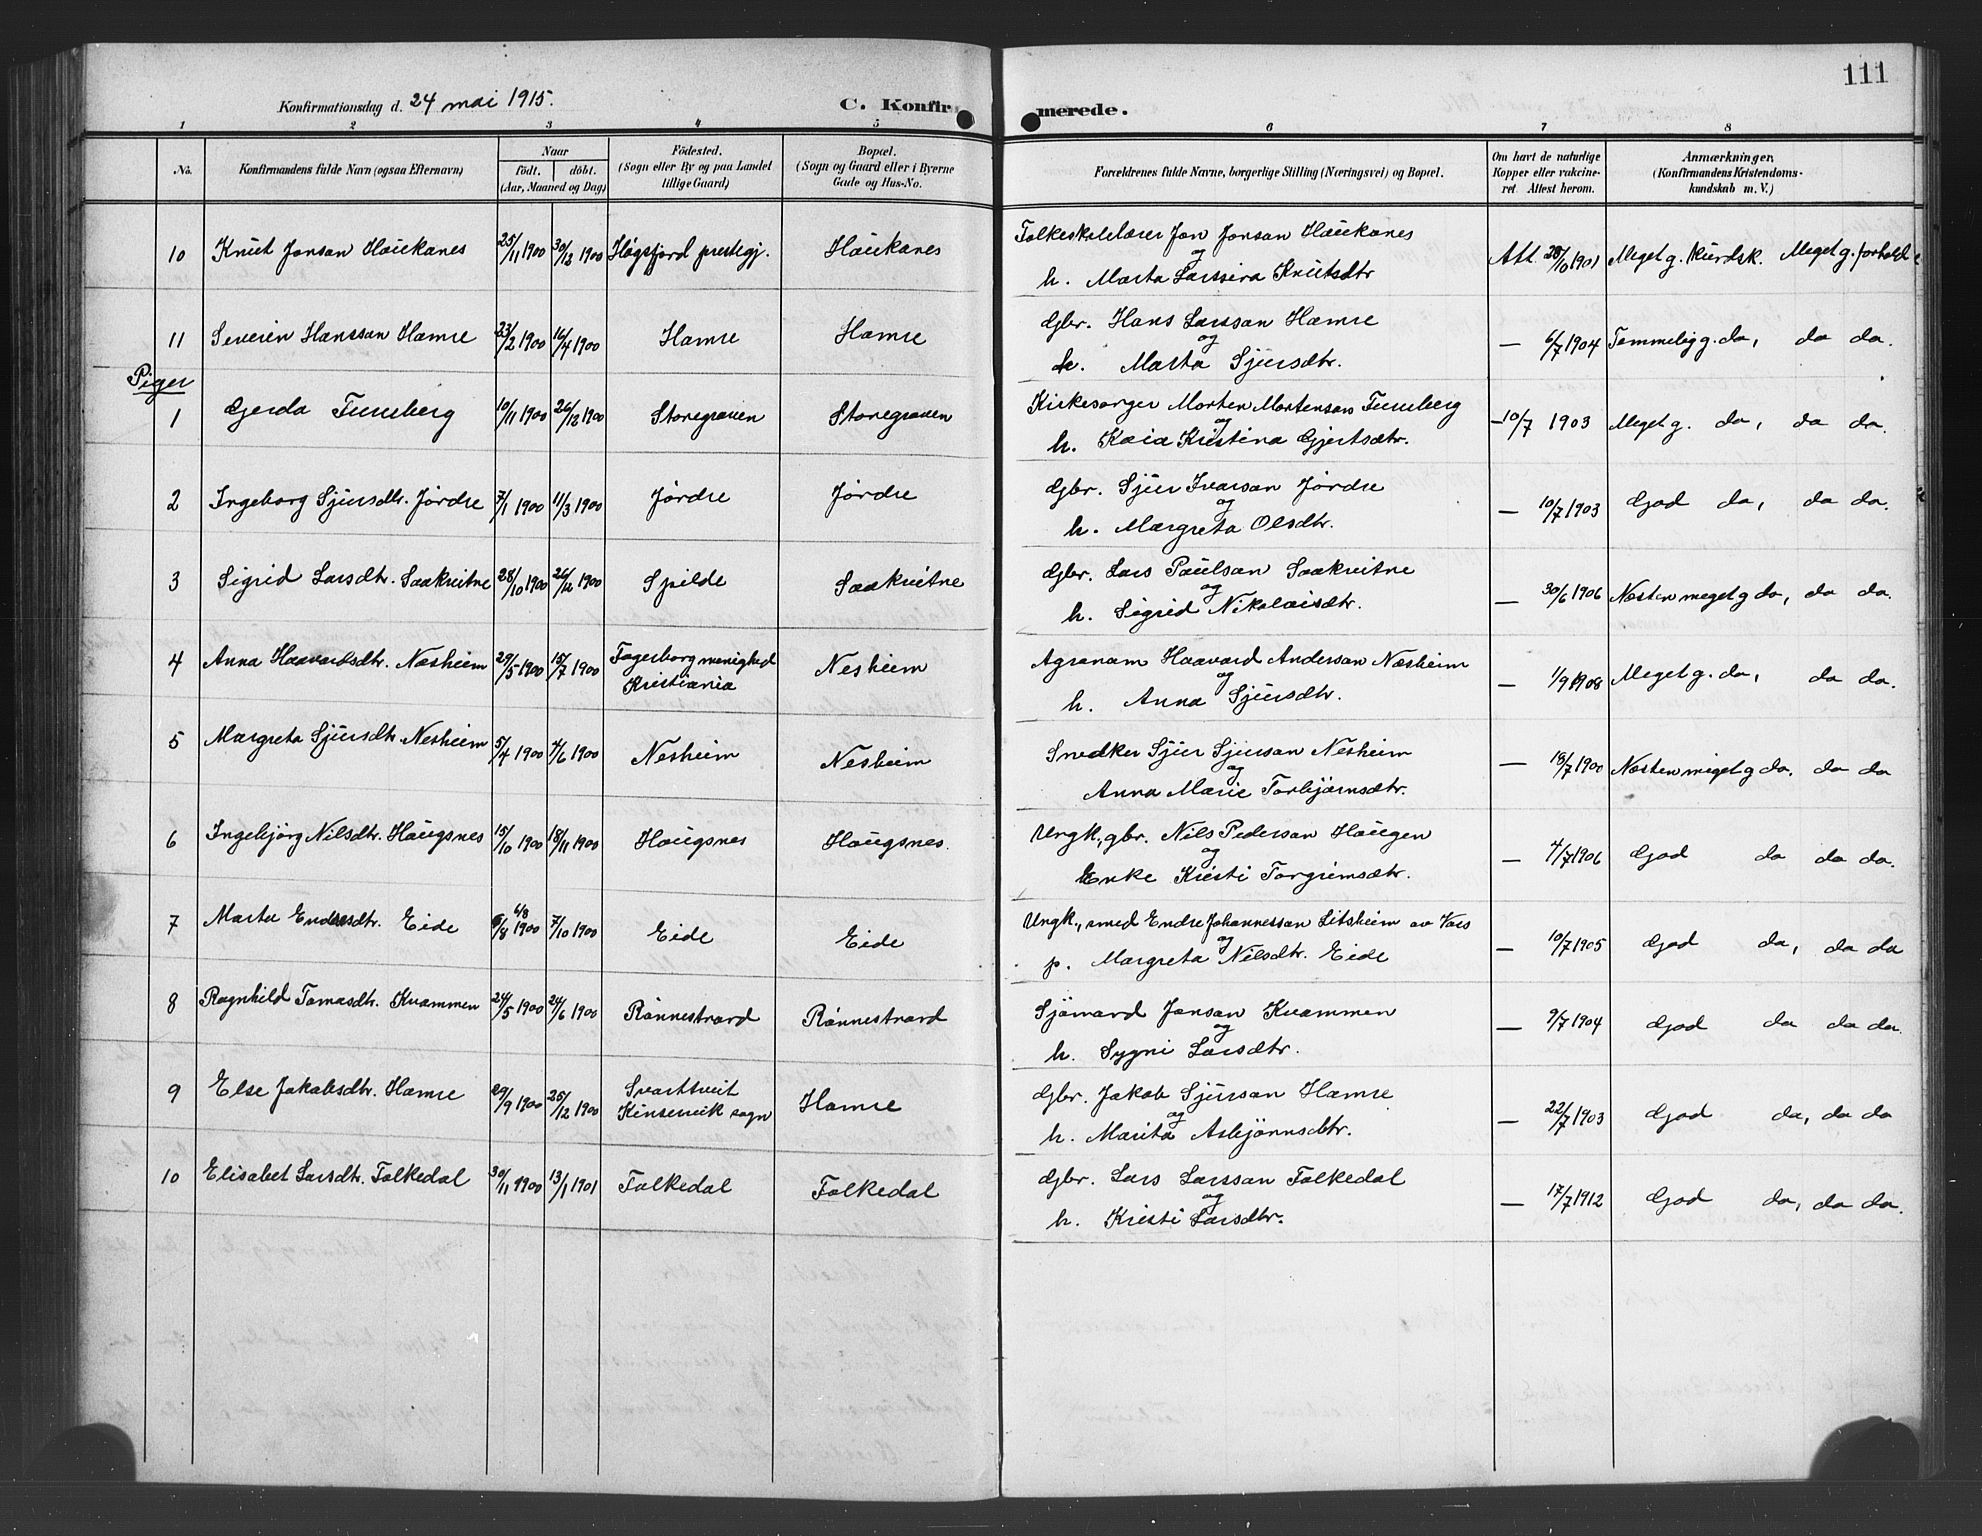 111
Konfirmationsdag d. 24 mai 1915. C. Konfirmerede.
1 2 3 4 5 6 7 8
No. Konfirmandens fulde Navn (ogsaa Efternavn) Naar födt. döbt. (Aar, Maaned og Dag) Födested. (Sogn eller By og paa Landet tillige Gaard) Bopæl. (Sogn og Gaard eller i Byerne Gade og Hus-No. Forældrenes fulde Navne, borgerlige Stilling (Næringsvei) og Bopæl. Om havt de naturlige Kopper eller vakcineret Attest herom. Anmærkninger. (Konfirmandens Kristendomskundskab m. V.)
10 Knut Jonsan Haukanes 25/11 1900 30/12 1900 Høgsfjord prestegj. Haukanes Folkeskolelærer Jon Jonsan Haukanes og h. Marta Larssina Knutsdtr Att. 28/10 1901 Meget g. kundsk. Meget g. forhold
11 Severin Hanssan Hamre 23/2 1900 16/4 1900 Hamre Hamre Gbr. Hans Larssan Hamre og h. Marta Sjursdtr. — 6/7 1904 Temmelig g. do, do do.
Piger
1 Gerda Tunsberg 10/11 1900 26/12 1900 Storegraven Storegraven Kirkesanger Morten Mortensan Tunsberg og h. Kaia Kristina Gjertsdtr. — 10/7 1903 Meget g. do, do do.
2 Ingeborg Sjursdtr. Jørdre 7/1 1900 11/3 1900 Jørdre Jørdre Gbr. Sjur Ivarsan Jørdre og h. Margreta Olsdtr. — 10/7 1903 God do, do do.
3 Sigrid Larsdtr. Saakvitne 28/10 1900 26/12 1900 Spilde Saakvitne Gbr. Lars Paulsan Saakvitne og h. Sigrid Nikolaisdtr. — 30/6 1906 Næsten meget g do, do do.
4 Anna Haavardsdtr. Næsheim 29/5 1900 15/7 1900 Fagerborg menighed Kristiania Nesheim Agronom Haavard Andersan Næsheim og h. Anna Sjursdtr. — 1/9 1908 Meget g. do, do do.
5 Margreta Sjursdtr. Nesheim 5/4 1900 4/6 1900 Nesheim Nesheim Snedker Sjur Sjursan Nesheim og Anna Marie Torbjørnsdtr. — 18/7 1900 Næsten meget g do. do do
6 Ingebjörg Nilsdtr. Haugsnes 15/10 1900 18/11 1900 Haugsnes Haugsnes. Ungk., gbr. Nils Pedersan Haugen og Enke Kristi Torgrimsdtr. — 4/7 1906 God do do do.
7 Marta Endresdtr. Eide 6/8 6/8 1900 7/10 1900 Eide Eide Ungk., smed Endre Johannessan Litsheim av Voss og p. Margreta Nilsdtr. Eide — 10/7 1905 God do, do do
8 Ragnhild Tomasdtr. Kvammen 24/5 1900 24/6 1900 Rønnestrand Rønnestrand Sjömand Jonsan Kvammen og h. Sygni Larsdtr. — 9/7 1904 God do do do.
9 Else Jakobsdtr. Hamre 29/9 1900 25/12 1900 Svarttveit Kinservik sogn Hamre Gbr. Jakob Sjursan Hamre og h. Marita Asbjørnsdtr. — 22/7 1903 God do, do do
10 Elisabet Larsdtr. Folkedal 30/11 1900 13/1 1901 Folkedal Folkedal Gbr. Lars Larssan Folkedal og h. Kristi Larsdtr. — 17/7 1912 God do, do do.